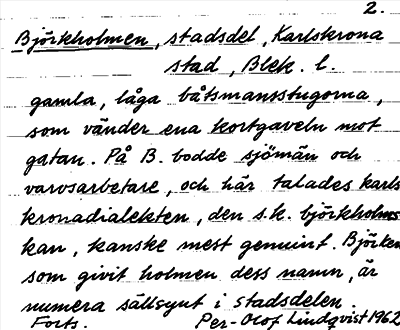 2.
Björkholmen, stadsdel, Karlskrona
stad, Blek. l.
gamla, låga båtsmansstugorna,
som vänder ena kortgaveln mot
gatan. På B. bodde sjömän och
varvsarbetare, och här talades karls
kronadialekten, den s.k. björkholms-
kan, kanske mest genuint. Björken
som givit holmen dess namn, är
numera sällsynt i stadsdelen.
Forts. Per-Olof Lindqvist 1962